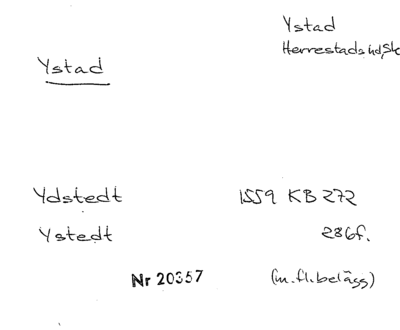 Ystad
Herrestads hd, Sk
Ystad
Ydstedt 1559 KB 272
Ystedt 286f.
Nr 20357 (m.fl.belägg)